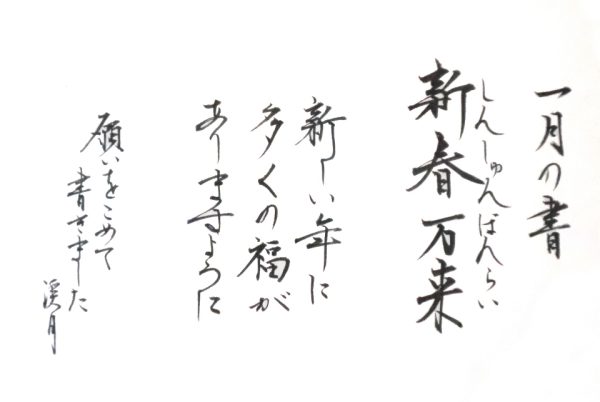 一月の書
しんしゅんばんらい
新春万来
新しい年に
多くの福が
ありますように
願いをこめて
書きました
渓月